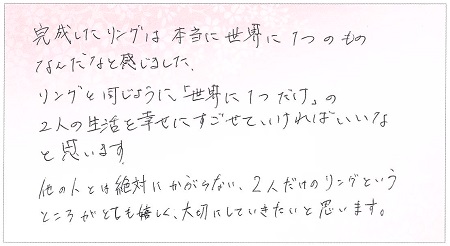 完成したリングは本当に世界に1つのもの
なんだなと感じました。
リングと同じように、「世界に1つだけ」の
2人の生活を幸せにすごせていければいいな
と思います
他の人とは絶対にかぶらない、2人だけのリングという
ところがとても嬉しく、大切にしていきたいと思います。